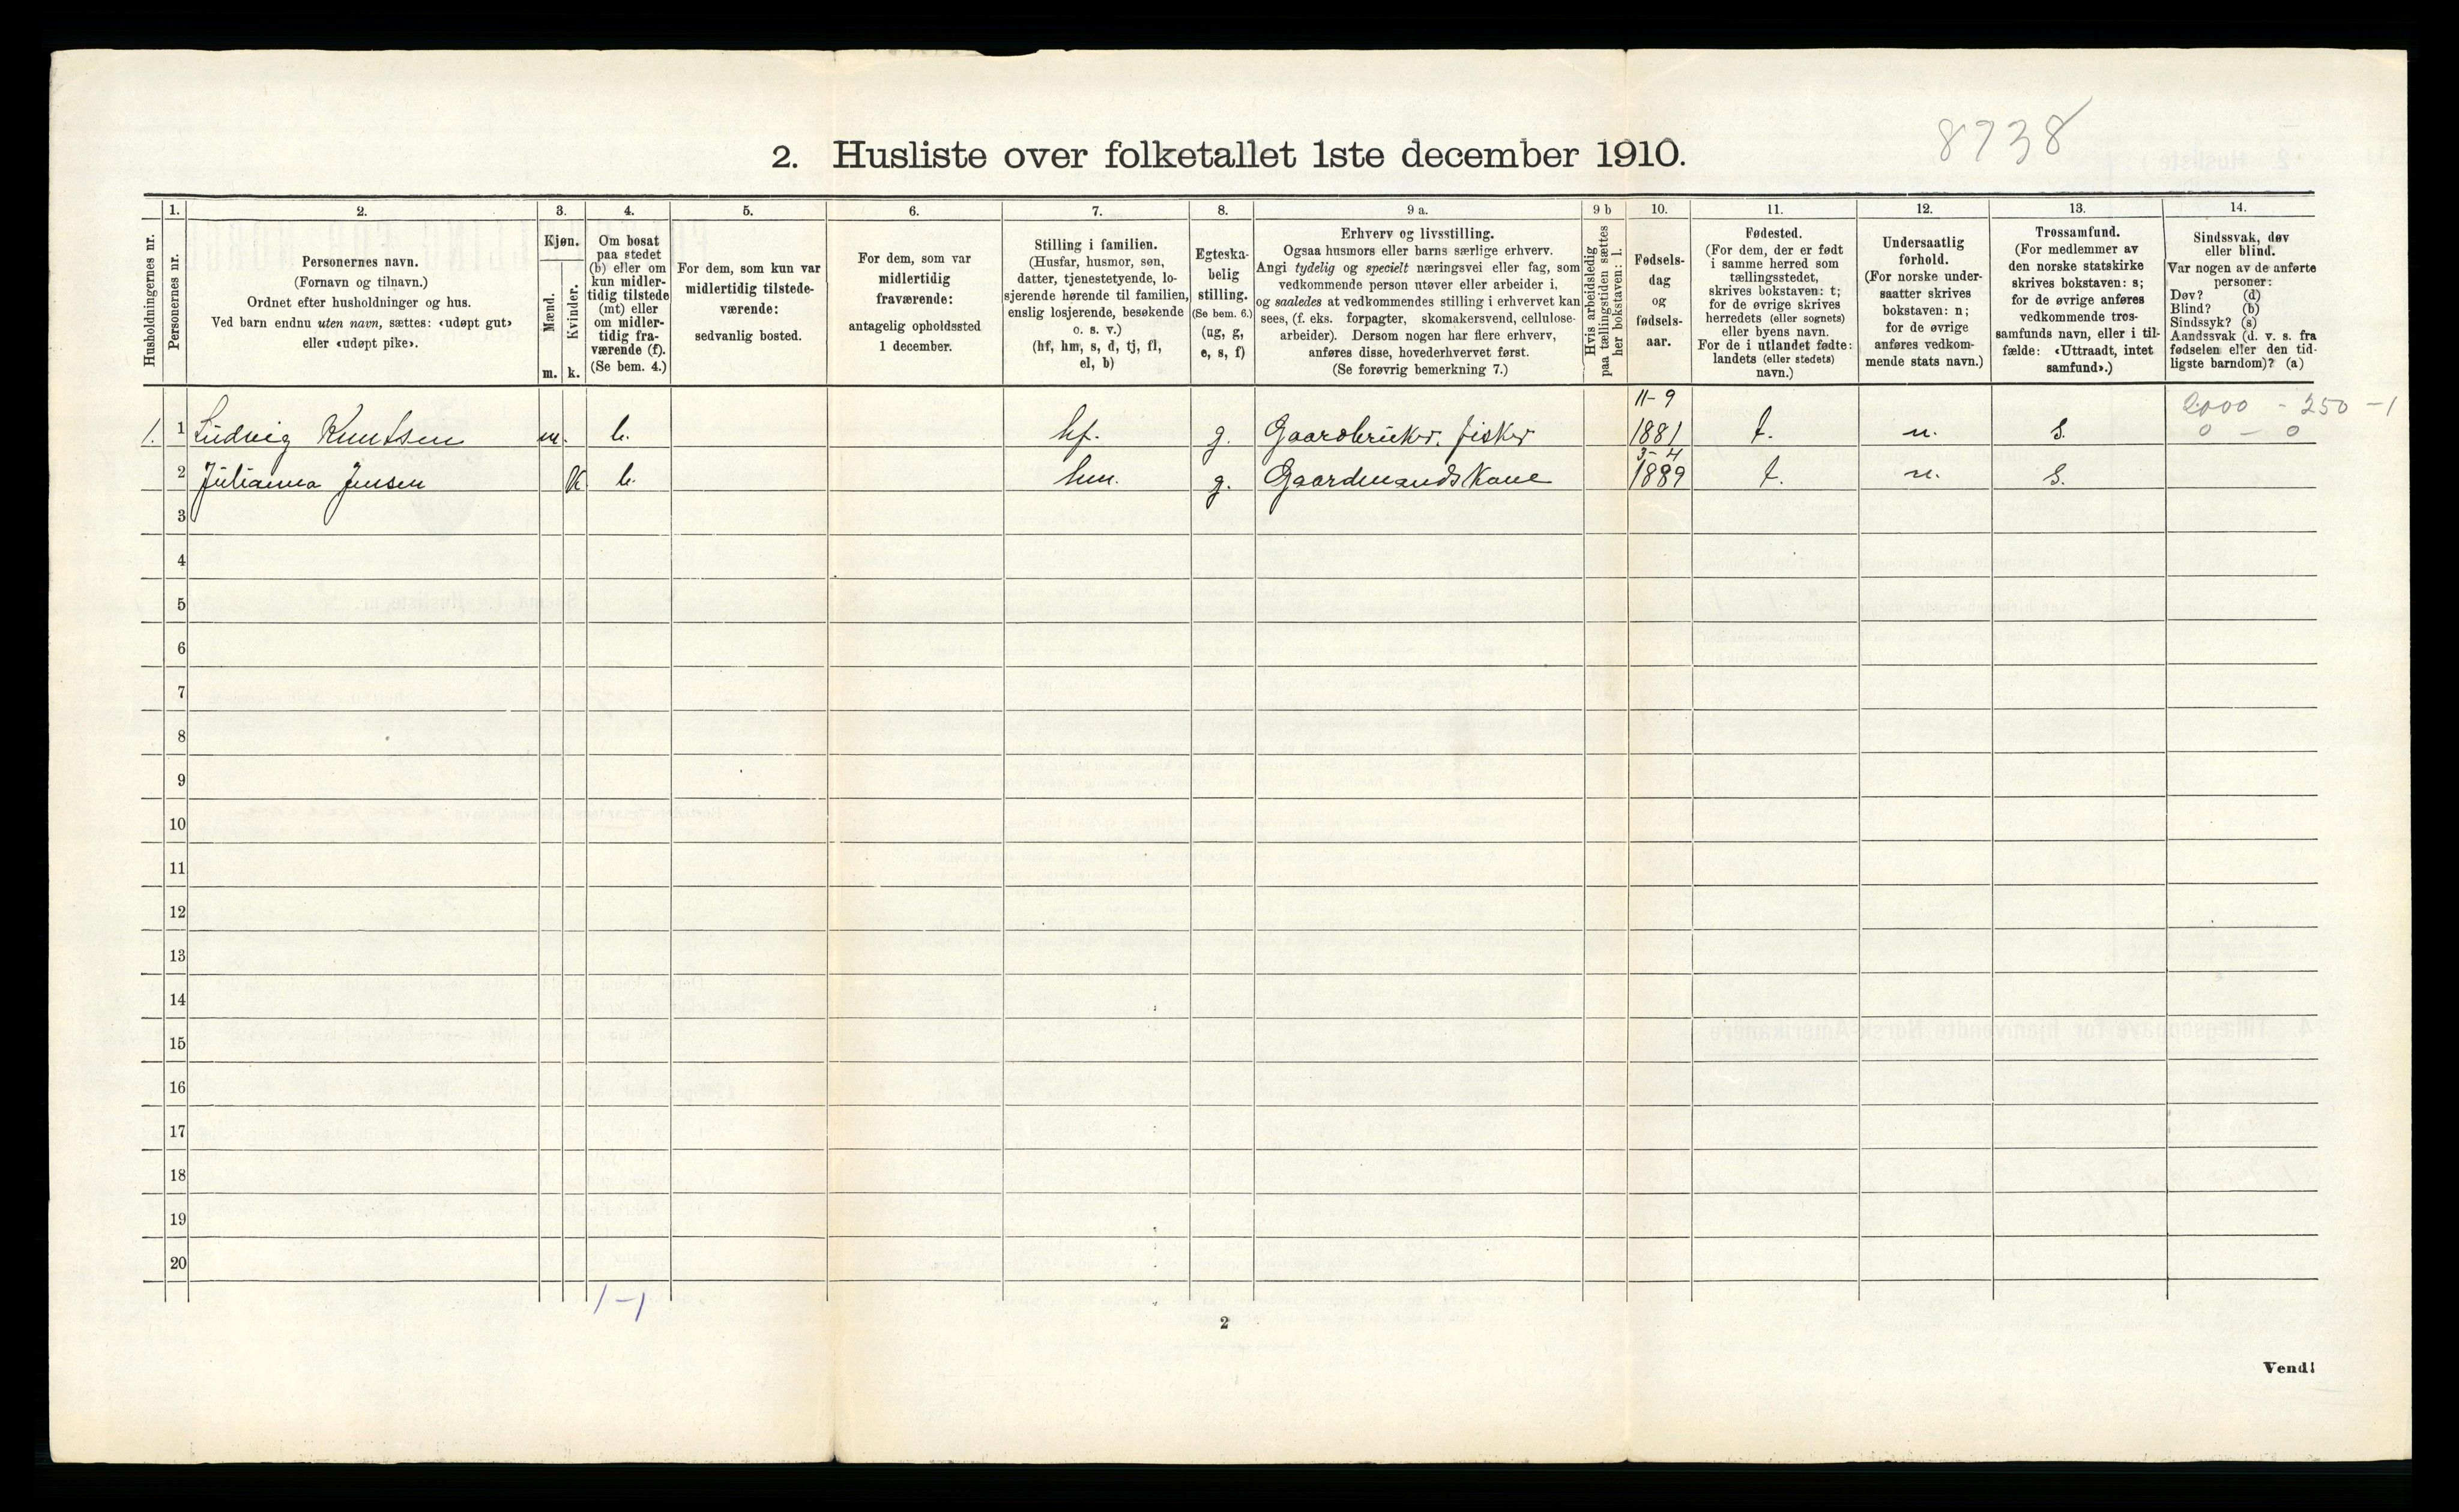 8738
2. Husliste over folketallet 1ste december 1910.
Husholdningernes nr.
1.
Personernes nr.
2.
Personernes navn.
(Fornavn og tilnavn.)
Ordnet efter husholdninger og hus.
Ved barn endnu uten navn, sættes: «udøpt gut»
eller «udøpt pike».
3.
Kjøn.
Mænd.
Kvinder.
m. k.
4.
Om bosat
paa stedet
(b) eller om
kun midler-
tidig tilstede
(mt) eller
om midler-
tidig fra-
værende (f).
(Se bem. 4.)
5.
For dem, som kun var
midlertidig tilstede-
værende:
sedvanlig bosted.
6.
For dem, som var
midlertidig
fraværende:
antagelig opholdssted
1 december.
7.
Stilling i familien.
(Husfar, husmor, søn,
datter, tjenestetyende, lo-
sjerende hørende til familien,
enslig losjerende, besøkende
o. s. v.)
(hf, hm, s, d, tj, fl,
el, b)
8.
Egteska-
belig
stilling.
(Se bem. 6.)
(ug, g,
e, s, f)
9 a.
Erhverv og livsstilling.
Ogsaa husmors eller barns særlige erhverv.
Angi tydelig og specielt næringsvei eller fag, som
vedkommende person utøver eller arbeider i,
og saaledes at vedkommendes stilling i erhvervet kan
sees, (f. eks. forpagter, skomakersvend, cellulose-
arbeider). Dersom nogen har flere erhverv,
anføres disse, hovederhvervet først.
(Se forøvrig bemerkning 7.)
9 b
Hvis arbeidsledig
paa tællingstiden sættes
her bokstaven: l.
10.
Fødsels-
dag
og
fødsels-
aar.
11.
Fødested.
(For dem, der er født
i samme herred som
tællingsstedet,
skrives bokstaven: t;
for de øvrige skrives
herredets (eller sognets)
eller byens navn.
For de i utlandet fødte:
landets (eller stedets)
navn.)
12.
Undersaatlig
forhold.
(For norske under-
saatter skrives
bokstaven: n;
for de øvrige
anføres vedkom-
mende stats navn.)
13.
Trossamfund.
(For medlemmer av
den norske statskirke
skrives bokstaven: s;
for de øvrige anføres
vedkommende tros-
samfunds navn, eller i til-
fælde: «Uttraadt, intet
samfund».)
14.
Sindssvak, døv
eller blind.
Var nogen av de anførte
personer:
Døv? (d)
Blind? (b)
Sindssyk? (s)
Aandssvak (d. v. s. fra
fødselen eller den tid-
ligste barndom)? (a)
11-9 2000 - 250 - 1
1. 1 Ludvig Knutsen m. b. hf. g. Gaardbruker. fisker 1881 t. n. S. 0 - 0
3-4
2 Julianna Jensen K. b. hm. g. GaardmandsKone 1889 t. n. S.
3
4
5
6
7
8
9
10
11
12
13
14
15
16
17
18
19
20
1-1
2
Vend!